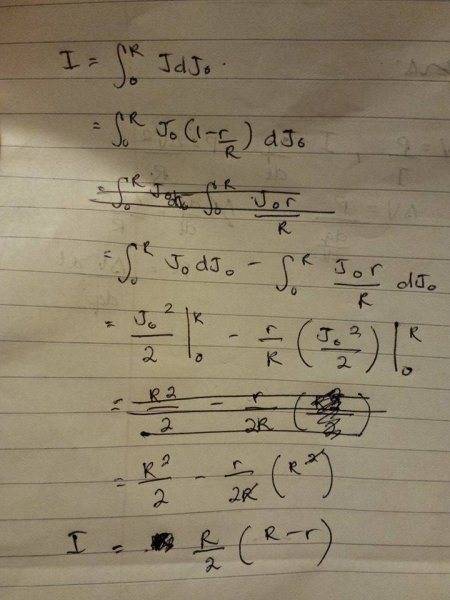 I = ∫₀ᴿ J dJ₀.
= ∫₀ᴿ J₀ (1 - r/R) dJ₀
= ∫₀ᴿ J₀ - ∫₀ᴿ J₀ r/R
= ∫₀ᴿ J₀ dJ₀ - ∫₀ᴿ J₀ r/R dJ₀
= J₀²/2 |₀ᴿ - r/R (J₀²/2) |₀ᴿ
= R²/2 - r/2R (
= R²/2 - r/2R (R²)
I = R/2 (R - r)